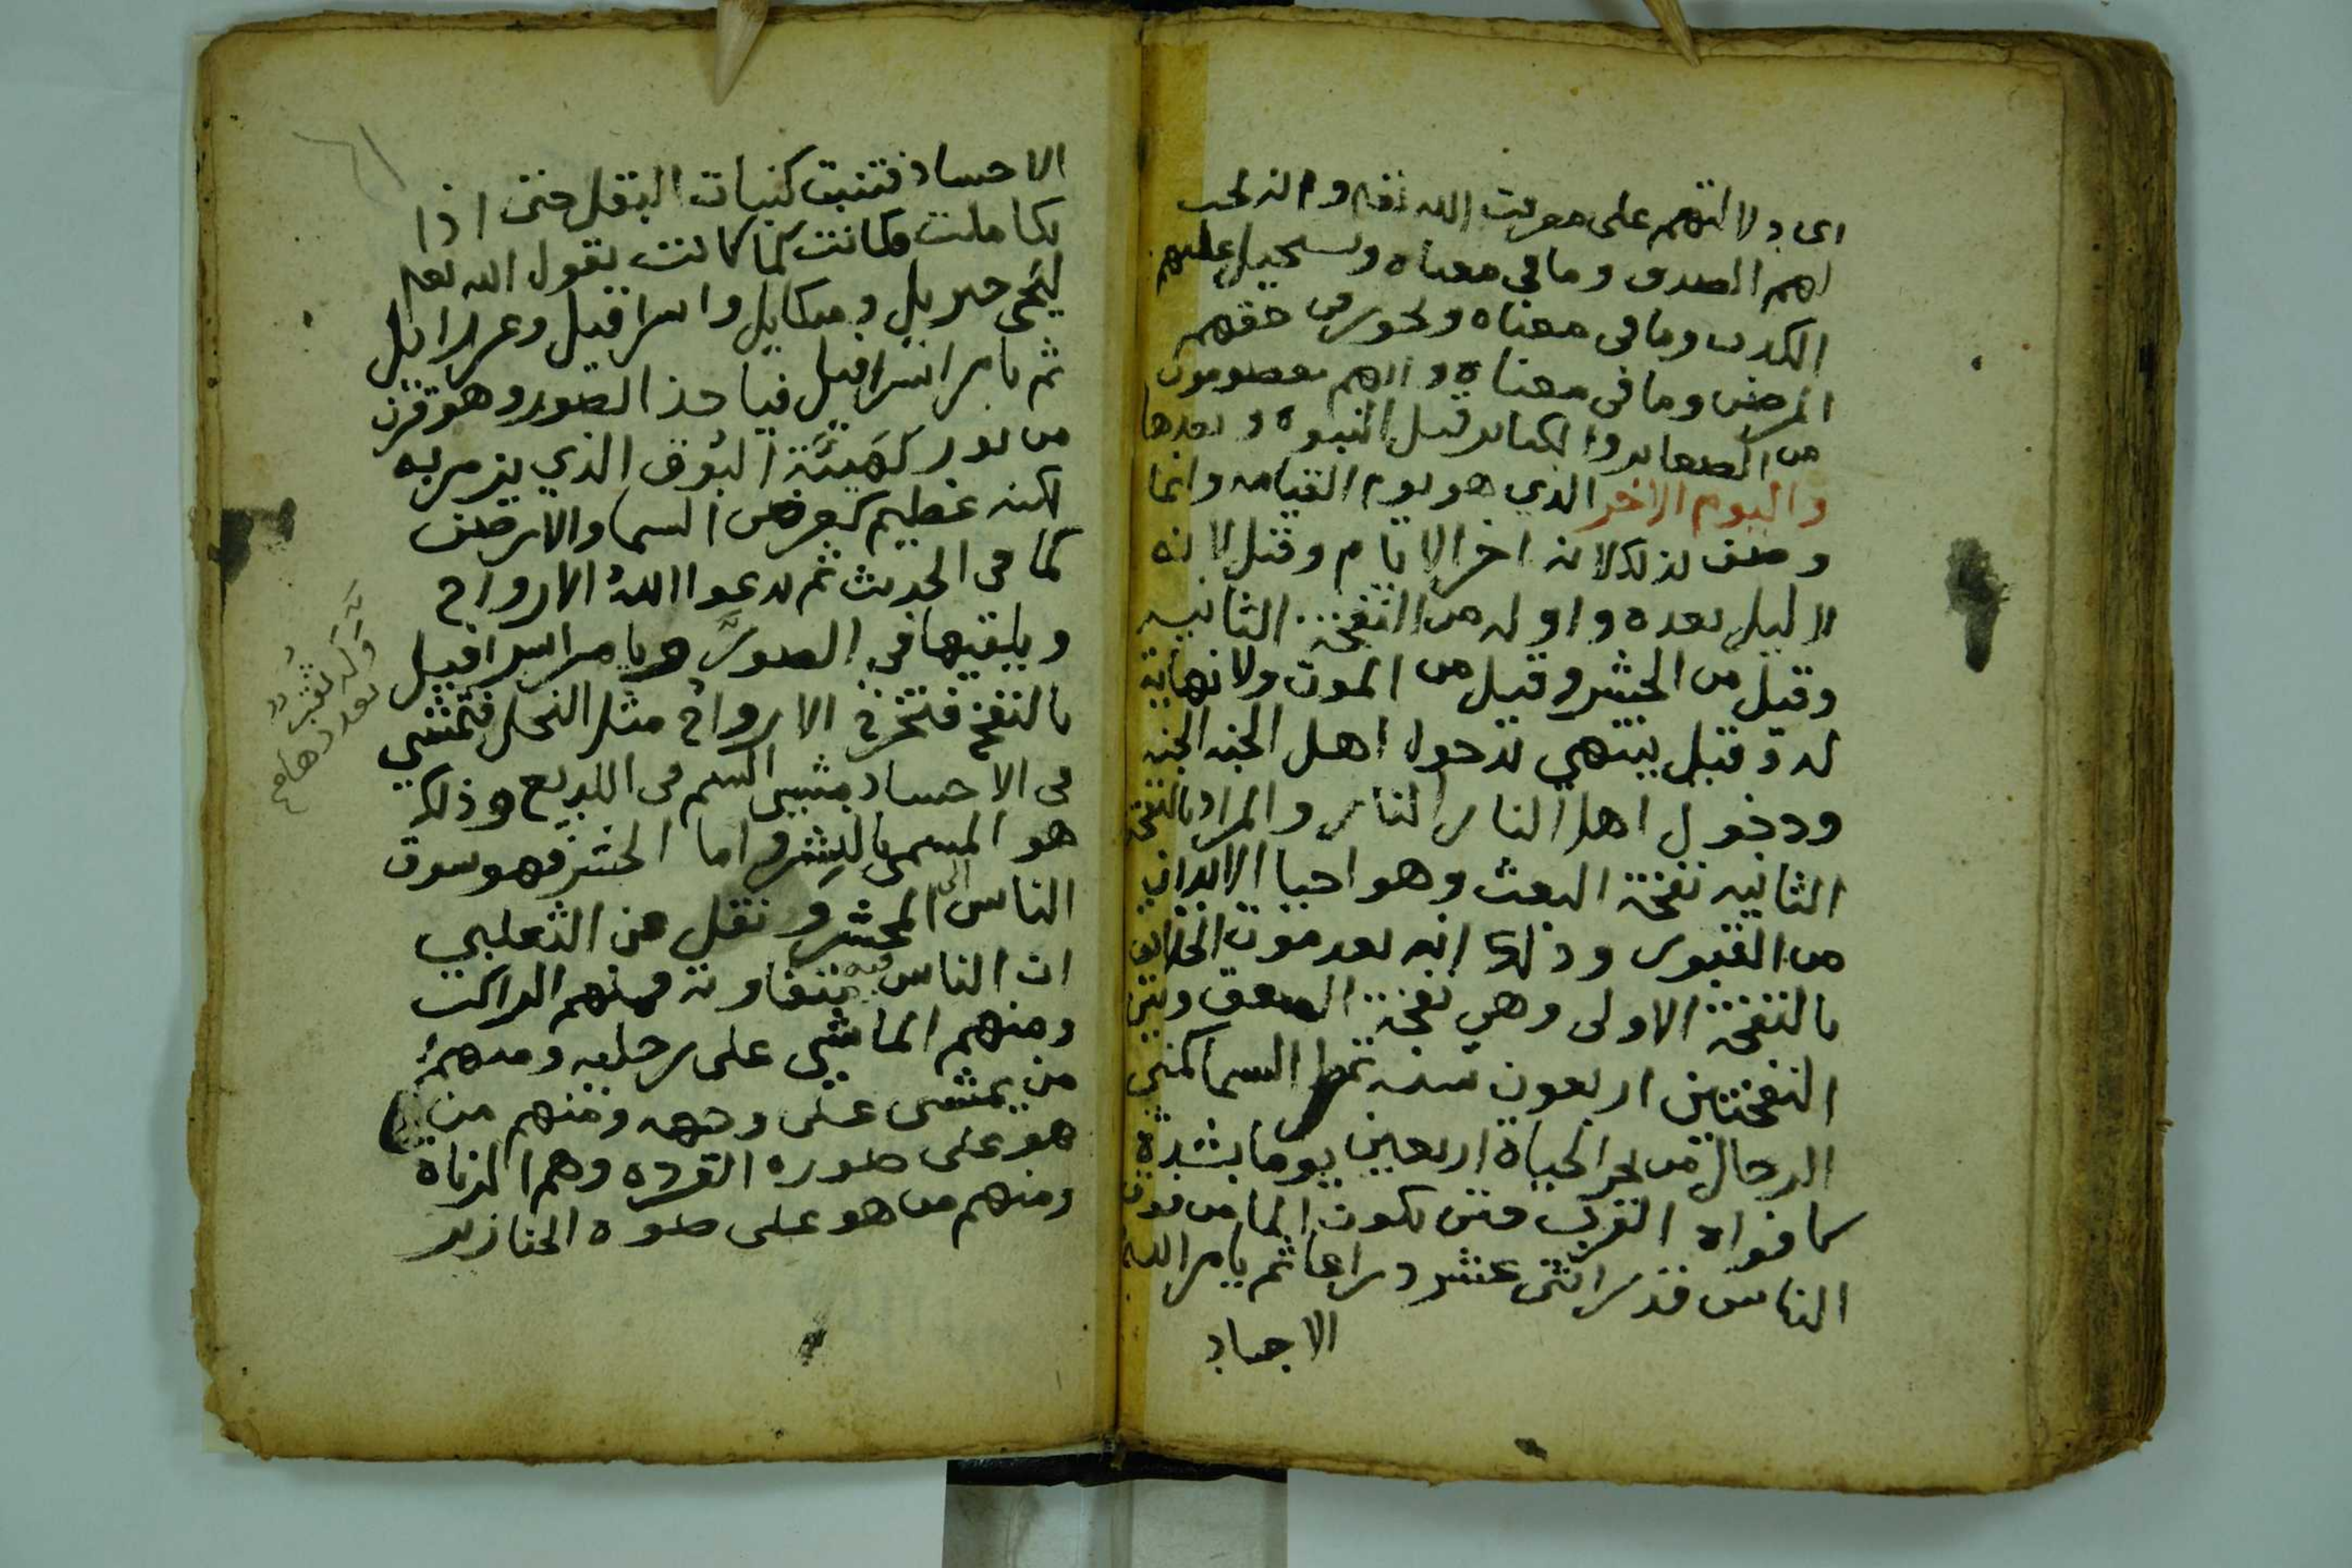 اى دلالتهم على معرفت الله تعالى وانه يجب
لهم الصدق وما في معناه ويستحيل عليهم
الكذب وما في معناه ويجوز في حقهم
المرض وما في معناه وانهم معصومون
من الصغاير والكباير قبل النبوه وبعدها
واليوم الاخر الذي هو يوم القيامه وانما
وصف بذلك لانه اخر الايام وقيل لانه
لا ليل بعده واوله من النفخة الثانيه
وقيل من الحشر وقيل من الموت ولا نهاية
له وقيل ينتهي بدخول اهل الجنه الجنه
ودخول اهل النار النار والمراد بالنفخة
الثانيه نفخة البعث وهو احيا الابدان
من القبور وذلك انه بعد موت الخلايق
بالنفخة الاولى وهي نفخة الصعق وبين
النفختين اربعون سنه تمطر السما كمني
الرجال من بحر الحياة اربعين يوما بشدة
كافواه القرب حتى يكون الما من فوق
الناس قدر اثنى عشر دراعا ثم يامر الله
الاجساد
الاجساد فتنبت كنبات البقل حتى اذا
تكاملت فكانت كما كانت يقول الله تعالى
ليحى جبريل وميكايل واسرافيل وعزرايل
ثم يامر اسرافيل فياخذ الصور وهو قرن
من نور كهيئة البوق الذي يزمر به
لكنه عظيم كعرض السما والارض
كما في الحديث ثم يدعوا الله الارواح
ويلقيها في الصور ويامر اسرافيل
بالنفخ فتخرج الارواح مثل النحل فتمشي
في الاجساد مشي السم في اللديع وذلك
هو المسمى بالنشر واما الحشر فهو سوق
الناس الى المحشر ونقل عن الثعلبي
ان الناس فيه متفاوته فمنهم الراكب
ومنهم الماشي على رجليه ومنهم
من يمشى على وجهه ومنهم من
هو على صوره القرده وهم الزناة
ومنهم من هو على صوه الخنازير